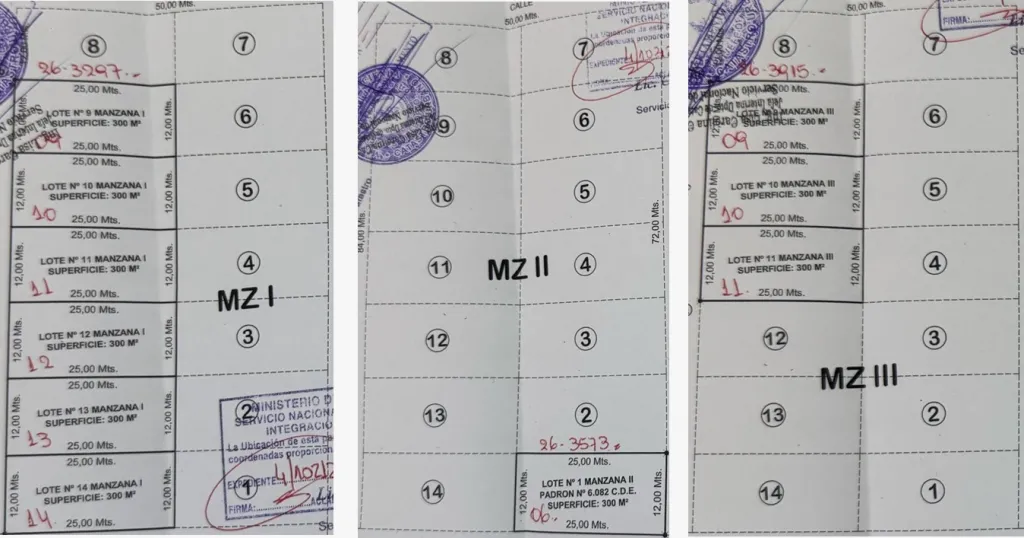 50,00 Mts.
8
7
26-3297..
25,00 Mts.
LOTE Nº 9 MANZANA I
SUPERFICIE: 300 M²
12,00 Mts.
09
6
25,00 Mts.
12,00 Mts.
LOTE Nº 10 MANZANA I
SUPERFICIE: 300 M²
12,00 Mts.
10
25,00 Mts.
5
12,00 Mts.
LOTE Nº 11 MANZANA I
SUPERFICIE: 300 M²
12,00 Mts.
11
25,00 Mts.
4
MZ I
12,00 Mts.
LOTE Nº 12 MANZANA I
SUPERFICIE: 300 M²
12,00 Mts.
12
25,00 Mts.
3
12,00 Mts.
LOTE Nº 13 MANZANA I
SUPERFICIE: 300 M²
12,00 Mts.
13
25,00 Mts.
2
MINISTERIO D
SERVICIO NACIONA
INTEGRACIO
La Ubicación de esta pa
coordenadas proporcion
EXPEDIENTE: 4/102/2
FIRMA:
12,00 Mts.
LOTE Nº 14 MANZANA I
SUPERFICIE: 300 M²
12,00 Mts.
14
25,00 Mts.
1
CALLE
50,00 Mts.
SERVICIO NACIONA
INTEGRAC
La Ubicación de esta p
coordenadas proporcio
EXPEDIENTE
8
7
Servicio
9
6
10
5
84,00 Mts.
72,00 Mts.
11
MZ II
4
12
3
13
2
26-3573.
25,00 Mts.
14
12,00 Mts.
LOTE Nº 1 MANZANA II
PADRON Nº 6.082 C.D.E.
SUPERFICIE: 300 M²
12,00 Mts.
06.
25,00 Mts.
50,00 Mts.
FIRMA:
8
7
26-3915.
25,00 Mts.
MANZANA III
SUPERFICIE: 300 M²
12,00 Mts.
09
25,00 Mts.
6
12,00 Mts.
LOTE Nº 10 MANZANA III
SUPERFICIE: 300 M²
12,00 Mts.
10
25,00 Mts.
5
12,00 Mts.
LOTE Nº 11 MANZANA III
SUPERFICIE: 300 M²
12,00 Mts.
11.
25,00 Mts.
4
12
3
MZ III
13
2
14
1